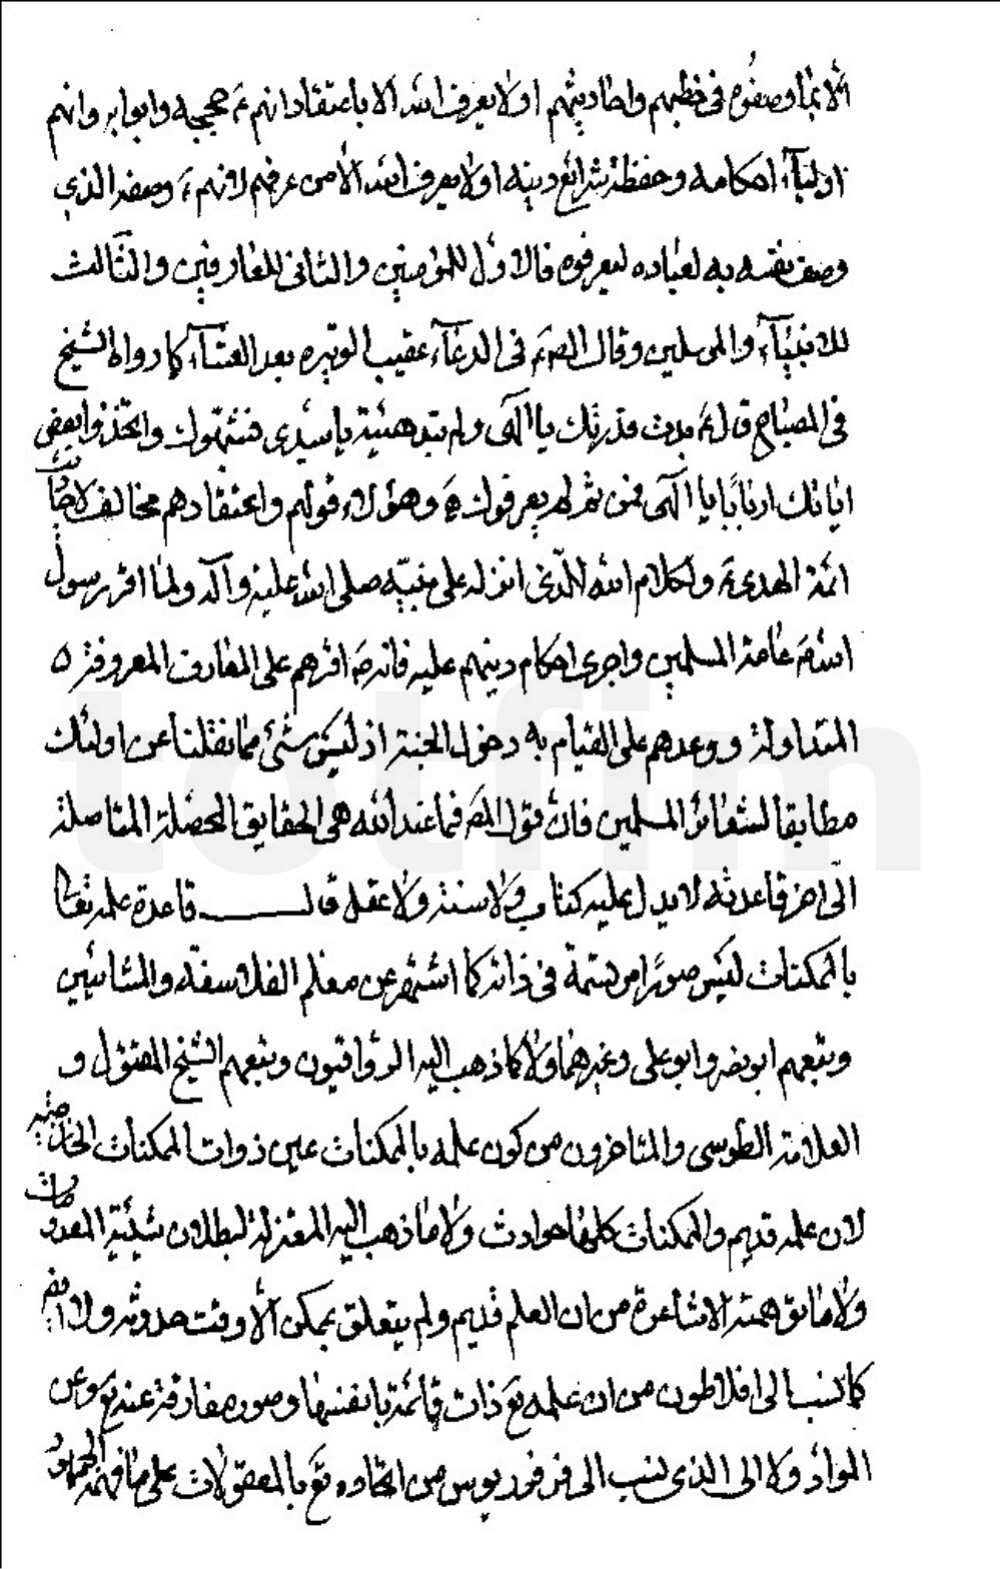 الا بما وصفوه في خطبهم واحاديثهم اولا يعرف الله الا باعتقاد انهم ع حججه وابوابه وانهم
اوليآء احكامه وحفظة شرائع دينه اولا يعرف الله الا من عرفهم لانهم ع وصفه الذي
وصف نفسه به لعباده ليعرفوه فالاول للمؤمنين والثاني للعارفين والثالث
للانبيآء والمرسلين وقال الص ع في الدعآء عقيب الوتيره بعد العشآء كما رواه الشيخ
في المصباح قال ع بدت قدرتك يا الهى ولم تبد هيئة يا سيدى فشبهوك واتخذوا بعض
اياتك اربابا يا الهى فمن ثم لم يعرفوك ه وهؤلاء قولهم واعتقادهم مخالف
ائمة الهدى ع ولكلام الله الذى انزله على نبيه صلى الله عليه وآله ولما اقر رسول
الله ص عامة المسلمين واجرى احكام دينهم عليه فانه ص اقرهم على المعارف المعروفة ٥
المتداولة ووعدهم على القيام به دخول الجنة اذ ليس شئ مما نقلنا عن اولئك
مطابقا لشعائر المسلمين فان قول المص فما عند الله هى الحقايق المحصلة المتاصلة
الى اخر قاعدته لا يدل عليه كتاب ولا سنة ولا عقل قال قاعدة علمه تعالى
بالممكنات ليس صورا مرتسمة في ذاته كما اشتهر عن معلم الفلاسفة والمشائين
وتبعهم ابو نصر وابو على وغيرهما ولا كما ذهب اليه الرواقيون وتبعهم الشيخ المقتول و
العلامة الطوسى والمتاخرون من كون علمه بالممكنات عين ذوات الممكنات الخارجية
لان علمه قديم والممكنات كلها حوادث ولا ما ذهب اليه المعتزلة لبطلان شيئية المعدومات
ولا ما توهمته الاشاعرة من ان العلم قديم ولم يتعلق بممكن الا وقت حدوثه ولا ايضا
كما نسب الى افلاطون من ان علمه تع ذات قائمة بانفسها وصور مفارقة عنه تع وعن
المواد ولا الى الذى نسب الى فرفوريوس من اتحاده تع بالمعقولات على ما فهمه الجمهور